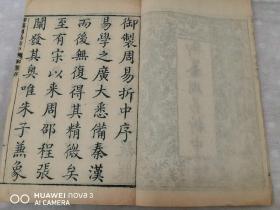 御製周易折中序
易學之廣大悉備秦漢
而後無復得其精微矣
至有宋以來周邵程張
闡發其奥唯朱子兼象
HUAWEI nova 3
AI CAMERA